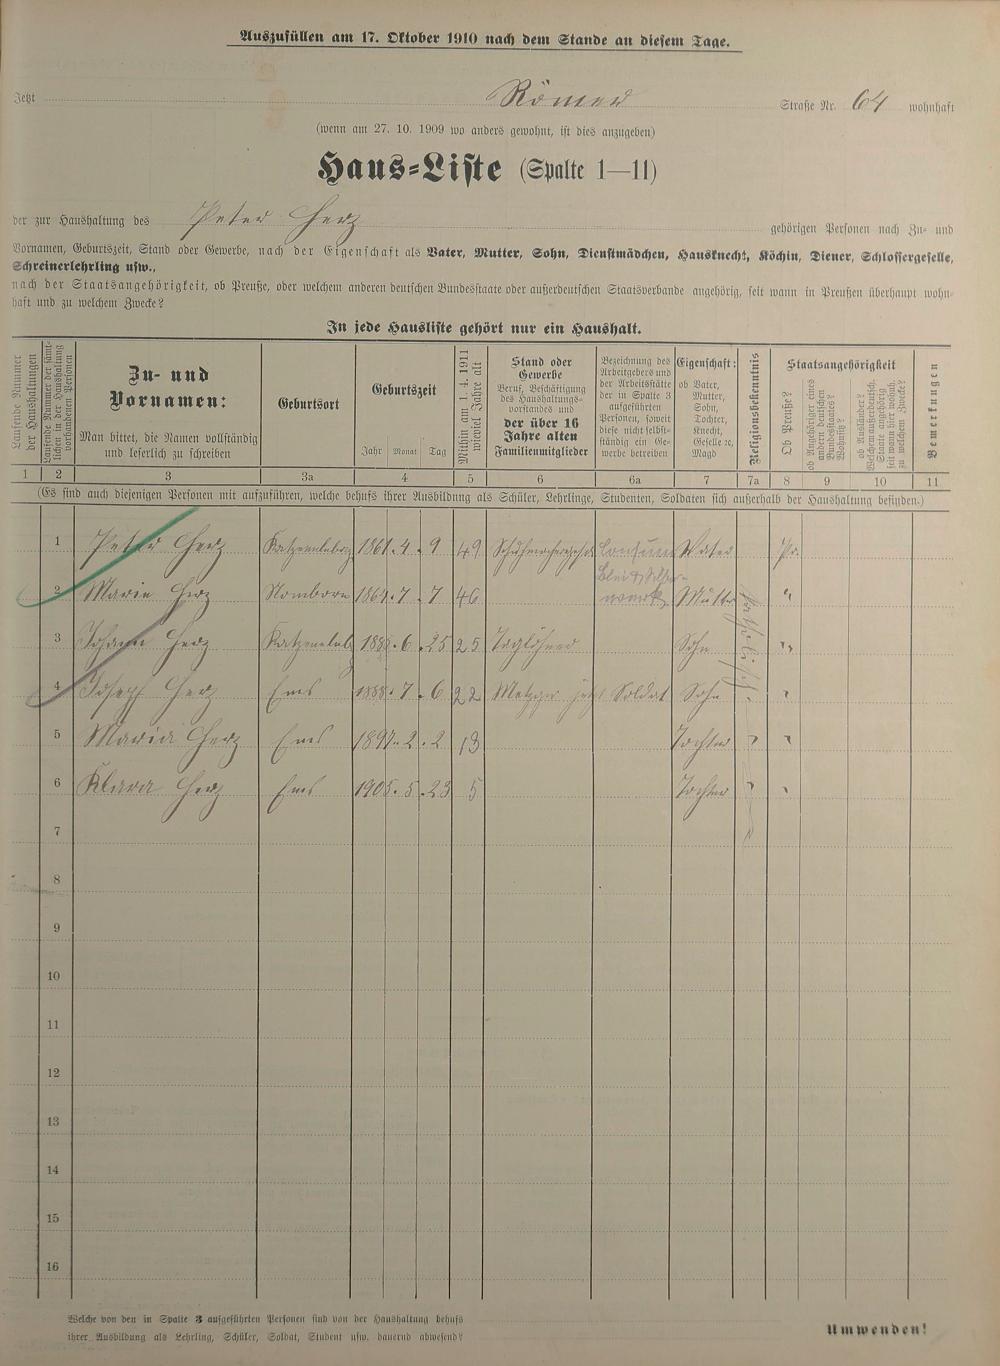 Auszufüllen am 17. Oktober 1910 nach dem Stande an diesem Tage.
Jetzt Römer Straße Nr. 64 wohnhaft
(wenn am 27. 10. 1909 wo anders gewohnt, ist dies anzugeben)
Haus-Liste (Spalte 1—11)
der zur Haushaltung des Peter Herz gehörigen Personen nach Zu- und
Vornamen, Geburtszeit, Stand oder Gewerbe, nach der Eigenschaft als Vater, Mutter, Sohn, Dienstmädchen, Hausknecht, Köchin, Diener, Schlossergeselle,
Schreinerlehrling usw.,
nach der Staatsangehörigkeit, ob Preuße, oder welchem anderen deutschen Bundesstaate oder außerdeutschen Staatsverbande angehörig, seit wann in Preußen überhaupt wohn-
haft und zu welchem Zwecke?
In jede Hausliste gehört nur ein Haushalt.
Laufende Nummer
der Haushaltungen
Laufende Nummer der sämt-
lichen in der Haushaltung
vorhandenen Personen
Zu- und
Vornamen:
Man bittet, die Namen vollständig
und leserlich zu schreiben
Geburtsort
Geburtszeit
Jahr Monat Tag
Mithin am 1. 4. 1911
wieviel Jahre alt
Stand oder
Gewerbe
Beruf, Beschäftigung
des Haushaltungs-
vorstandes und
der über 16
Jahre alten
Familienmitglieder
Bezeichnung des
Arbeitgebers und
der Arbeitsstätte
der in Spalte 3
aufgeführten
Personen, soweit
diese nicht selbst-
ständig ein Ge-
werbe betreiben
Eigenschaft:
ob Vater,
Mutter,
Sohn,
Tochter,
Knecht,
Geselle ec,
Magd
Religionsbekenntnis
Staatsangehörigkeit
Ob Preuße?
ob Angehöriger eines
andern deutschen
Bundesstaates?
Welchem außerdeutsch.
Staate angehörig
seit wann hier wohnh.
zu welchem Zwecke?
Bemerkungen
1 2 3 3a 4 5 6 6a 7 7a 8 9 10 11
(Es sind auch diejenigen Personen mit aufzuführen, welche behufs ihrer Ausbildung als Schüler, Lehrlinge, Studenten, Soldaten sich außerhalb der Haushaltung befinden.)
1 Peter Herz 1861. 4. 9 49 Consum Vater Pr.
Blei & Silber-
2 Marie Herz Nomborn 1864. 7. 7 46 werk Mutter katholisch "
3 Johann Herz 6. 25 25 Taglöhner Sohn "
4 Joseph Herz Ems 1888. 7. 6 22 Metzger jetzt Soldat Sohn "
5 Maria Herz Ems 1897. 2. 2 13 Tochter " "
6 Klara Herz Ems 1905. 5. 23 5 Tochter " "
7
8
9
10
11
12
13
14
15
16
Welche von den in Spalte 3 aufgeführten Personen sind von der Haushaltung behufs
ihrer Ausbildung als Lehrling, Schüler, Soldat, Student usw. dauernd abwesend?
Umwenden!